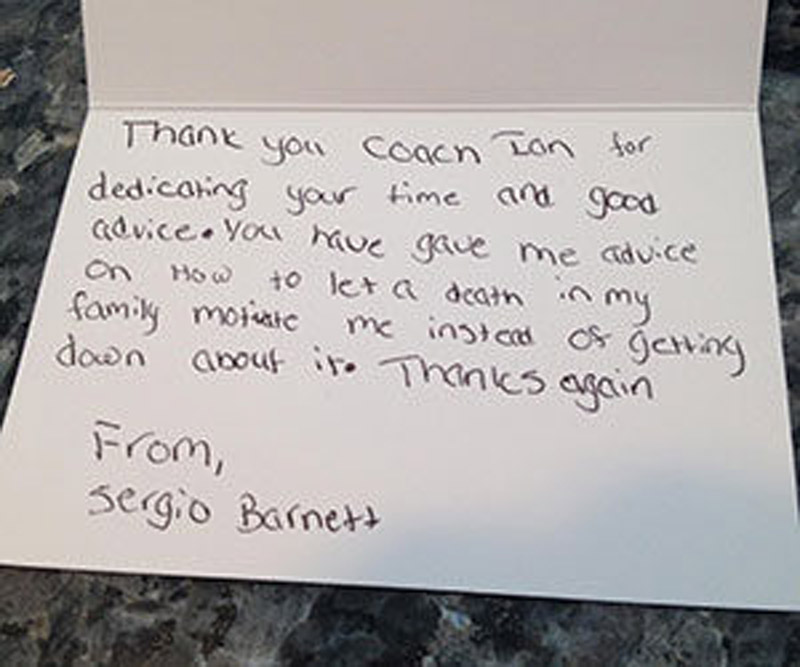 Thank you Coach Ian for
dedicating your time and good
advice. You have gave me advice
on How to let a death in my
family motivate me instead of getting
down about it. Thanks again
From,
Sergio Barnett